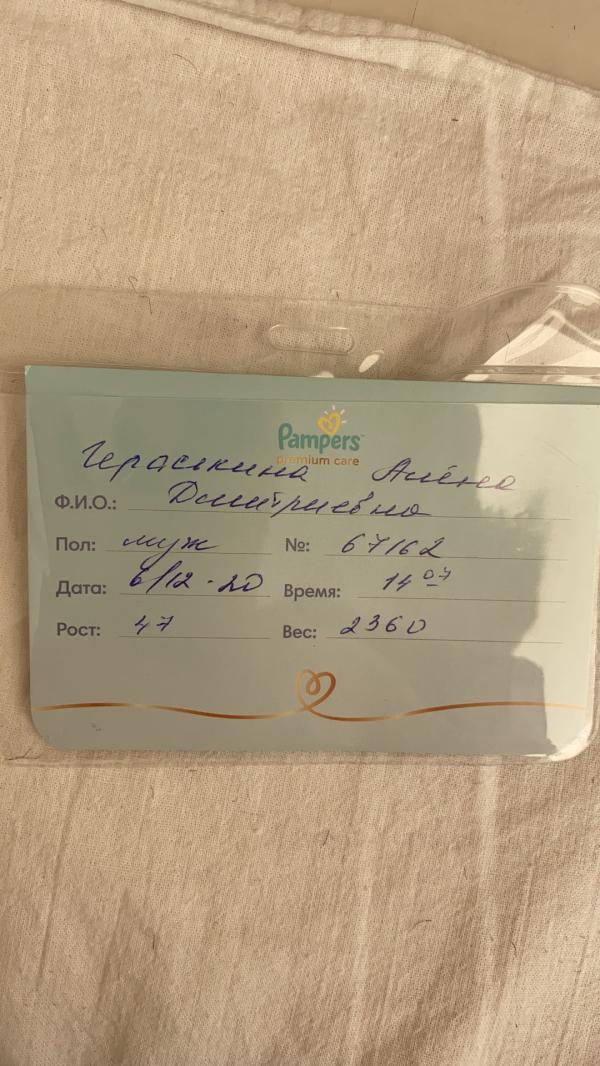 Pampers
premium care
Гераськина Алёна
Ф.И.О.: Дмитриевна
Пол: муж №: 67162
Дата: 6/12-20 Время: 14 07
Рост: 47 Вес: 2360